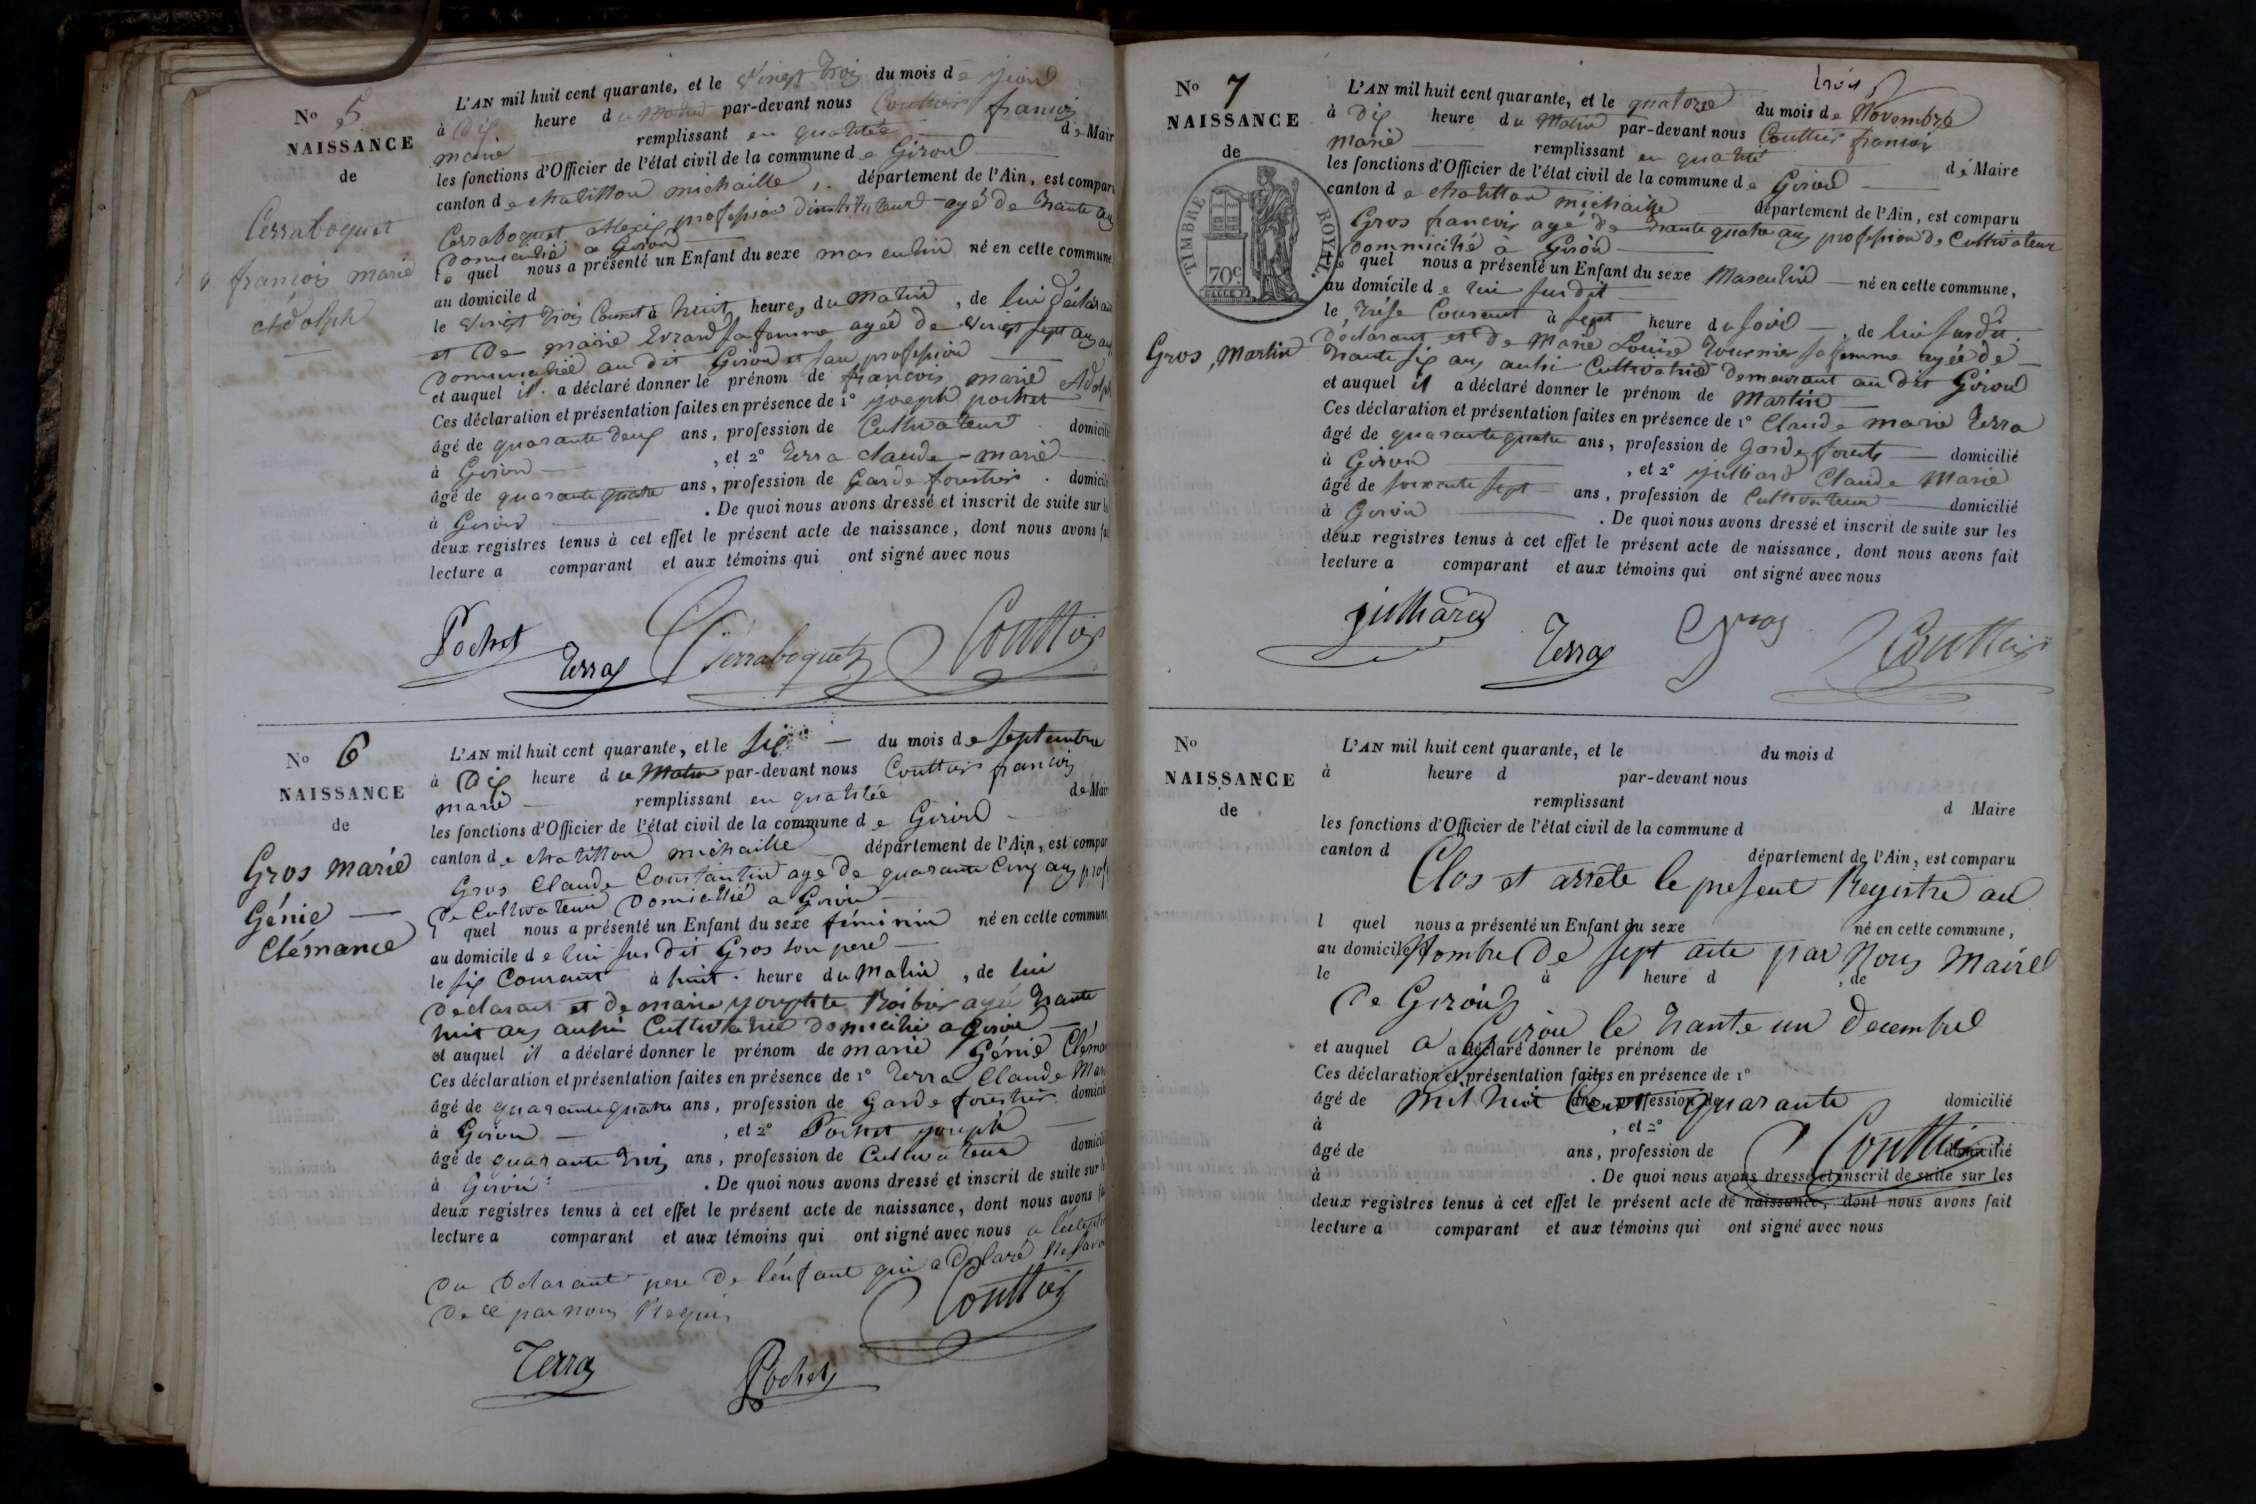 N° 5
NAISSANCE
de
Cerraboquet
françois marie
Adolph
L'AN mil huit cent quarante, et le vingt trois du mois de juin
à Dix heure du Matin par-devant nous Couttier françois
marie remplissant en qualité de Mair
les fonctions d'Officier de l'état civil de la commune de Giron
canton de chatillon michaille, département de l'Ain, est compar
Cerraboquet Alexis profession d'instituteur agé de trante ans
Domicilié a Giron
le quel nous a présenté un Enfant du sexe masculin né en cette commune
au domicile d
le vingt trois Courant à huit heures du Matin, de lui déclarant
et De marie Evrard sa femme agée de vingt sept ans
Domiciliée au dit Giron et san profession
et auquel il a déclaré donner le prénom de françois marie Adolph
Ces déclaration et présentation faites en présence de 1° joseph pochet
âgé de quarante deux ans, profession de Cultivateur domicilié
à Giron, et 2° Terra claude-marie
âgé de quarante quatre ans, profession de Garde forestier. domicilié
à Giron. De quoi nous avons dressé et inscrit de suite sur le
deux registres tenus à cet effet le présent acte de naissance, dont nous avons fai
lecture a comparant et aux témoins qui ont signé avec nous
Pochet Terraz Cerraboquet Couttier
N° 6
NAISSANCE
de
Gros Marie
Génie
Clémance
L'AN mil huit cent quarante, et le six du mois de septembre
à Dix heure du Matin par-devant nous Couttier françois
marie remplissant en qualitée de Mair
les fonctions d'Officier de l'état civil de la commune de Giron
canton de chatillon michaille département de l'Ain, est compar
Gros Claude Constantin agé de quarante cinq ans prof
De Cultivateur Domicilié a Giron
l quel nous a présenté un Enfant du sexe féminin né en cette commune
au domicile de lui sus dit Gros son pere
le six Courant à huit heure du Matin, de lui
Declarant et de marie josephte agée trante
huit ans aussi Cultivatrice domicilié a Giron
et auquel il a déclaré donner le prénom de marie Génie Cléman
Ces déclaration et présentation faites en présence de 1° Terra Claude Mari
âgé de quarante quatre ans, profession de Garde forestier domicilié
à Giron, et 2° Pochet joseph
âgé de quarante trois ans, profession de Cultivateur domicilié
à Giron. De quoi nous avons dressé et inscrit de suite sur l
deux registres tenus à cet effet le présent acte de naissance, dont nous avons fai
lecture a comparant et aux témoins qui ont signé avec nous a l'éxception
Du Declarant pere De l'enfant qui a Déclaré Ne savoir
De ce par nous Requis
Couttier
Terraz Pochet
N° 7
NAISSANCE
de
TIMBRE ROYAL
70c
Gros, Martin
L'AN mil huit cent quarante, et le quatorze du mois de Novembre
à Dix heure du Matin par-devant nous Couttier françois
marie remplissant en qualité de Maire
les fonctions d'Officier de l'état civil de la commune de Giron
canton de chatillon michaille département de l'Ain, est comparu
Gros françois agé de trante quatre ans profession de Cultivateur
Dommicilié à Giron
le quel nous a présenté un Enfant du sexe Masculin né en cette commune,
au domicile de lui susdit
le trése Courant à sept heure du soir, de lui susdit
Déclarant et de Marie Louise Tournier sa femme agée de
trante six ans aussi Cultivatrice demeurant au dit Giron
et auquel il a déclaré donner le prénom de Martin
Ces déclaration et présentation faites en présence de 1° Claude marie Terra
âgé de quarante quatre ans, profession de Garde forests domicilié
à Giron, et 2° julliard Claude Marie
âgé de soixante sept ans, profession de Cultivateur domicilié
à Giron. De quoi nous avons dressé et inscrit de suite sur les
deux registres tenus à cet effet le présent acte de naissance, dont nous avons fait
lecture a comparant et aux témoins qui ont signé avec nous
julliard Terraz Gros Couttier
N°
NAISSANCE
de
L'AN mil huit cent quarante, et le du mois d
à heure d par-devant nous
remplissant d Maire
les fonctions d'Officier de l'état civil de la commune d
canton d département de l'Ain, est comparu
Clos et arrêté le present Registre au
l quel nous a présenté un Enfant du sexe né en cette commune,
au domicile d
Nombre De sept acte par Nous Maire
le à heure d, de
De Giron
a Giron le trante un decembre
et auquel a déclaré donner le prénom de
Ces déclaration et présentation faites en présence de 1°
âgé de ans, profession de domicilié
mil huit Cent quarante
à, et 2°
âgé de ans, profession de domicilié
Couttier
à. De quoi nous avons dressé et inscrit de suite sur les
deux registres tenus à cet effet le présent acte de naissance, dont nous avons fait
lecture a comparant et aux témoins qui ont signé avec nous